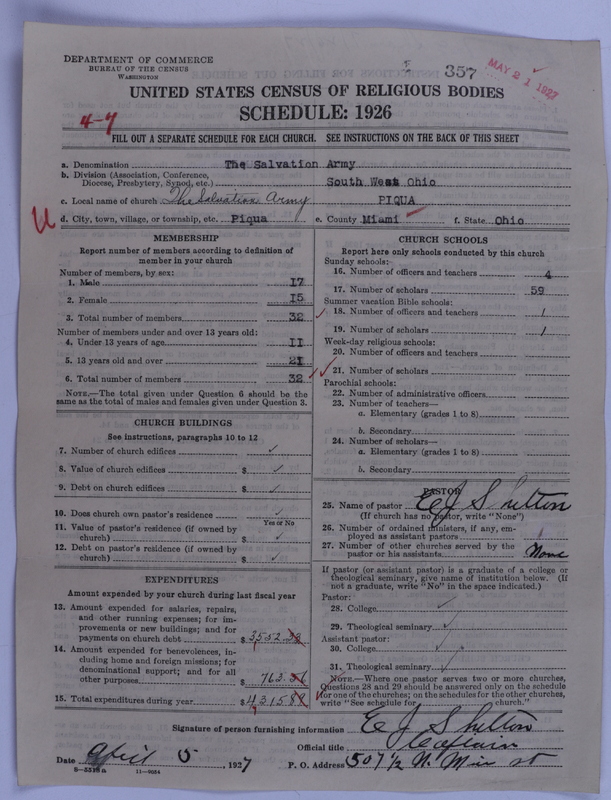 DEPARTMENT OF COMMERCE
BUREAU OF THE CENSUS
WASHINGTON
357
MAY 21 1927
UNITED STATES CENSUS OF RELIGIOUS BODIES
SCHEDULE: 1926
4-7
FILL OUT A SEPARATE SCHEDULE FOR EACH CHURCH. SEE INSTRUCTIONS ON THE BACK OF THIS SHEET
a. Denomination The Salvation Army
b. Division (Association, Conference, Diocese, Presbytery, Synod, etc.) South West Ohio
c. Local name of church The Salvation Army PIQUA
d. City, town, village, or township, etc. Piqua e. County Miami f. State Ohio
MEMBERSHIP
Report number of members according to definition of member in your church
Number of members, by sex:
1. Male 17
2. Female 15
3. Total number of members 32
Number of members under and over 13 years old:
4. Under 13 years of age 11
5. 13 years old and over 21
6. Total number of members 32
NOTE.—The total given under Question 6 should be the same as the total of males and females given under Question 3.
CHURCH BUILDINGS
See instructions, paragraphs 10 to 12
7. Number of church edifices ✓
8. Value of church edifices $ ✓
9. Debt on church edifices $ ✓
10. Does church own pastor's residence ✓
Yes or No
11. Value of pastor's residence (if owned by church) $ ✓
12. Debt on pastor's residence (if owned by church) $ ✓
EXPENDITURES
Amount expended by your church during last fiscal year
13. Amount expended for salaries, repairs, and other running expenses; for improvements or new buildings; and for payments on church debt $
14. Amount expended for benevolences, including home and foreign missions; for denominational support; and for all other purposes $
15. Total expenditures during year $
CHURCH SCHOOLS
Report here only schools conducted by this church
Sunday schools:
16. Number of officers and teachers 4
17. Number of scholars 59
Summer vacation Bible schools:
18. Number of officers and teachers /
19. Number of scholars /
Week-day religious schools:
20. Number of officers and teachers
21. Number of scholars
Parochial schools:
22. Number of administrative officers
23. Number of teachers—
a. Elementary (grades 1 to 8)
b. Secondary
24. Number of scholars—
a. Elementary (grades 1 to 8)
b. Secondary
PASTOR
25. Name of pastor E J Shelton
(If church has no pastor, write "None")
26. Number of ordained ministers, if any, employed as assistant pastors
27. Number of other churches served by the pastor or his assistants None
If pastor (or assistant pastor) is a graduate of a college or theological seminary, give name of institution below. (If not a graduate, write "No" in the space indicated.)
Pastor:
28. College ✓
29. Theological seminary ✓
Assistant pastor:
30. College ✓
31. Theological seminary ✓
NOTE.—Where one pastor serves two or more churches, Questions 28 and 29 should be answered only on the schedule for one of the churches; on the schedules for the other churches, write "See schedule for ........ church."
Signature of person furnishing information E J Shelton
Official title Captain
Date April 5, 1927 P. O. Address 507 1/2 N. Main st
11—9054